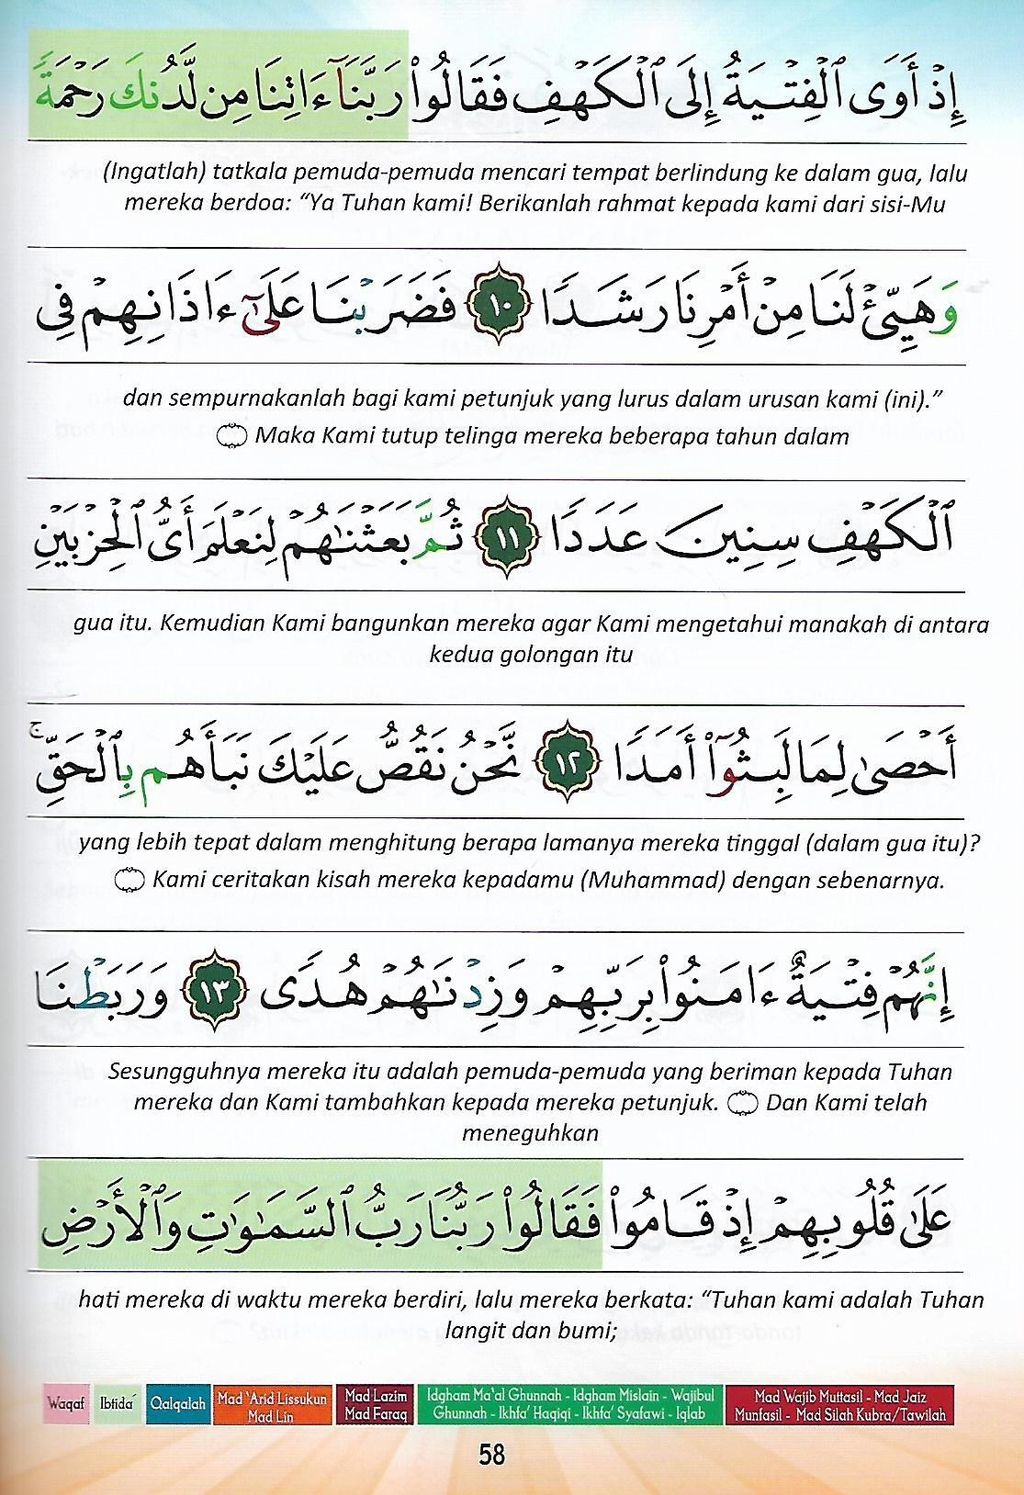 إِذْ أَوَى ٱلْفِتْيَةُ إِلَى ٱلْكَهْفِ فَقَالُوا۟ رَبَّنَآ ءَاتِنَا مِن لَّدُنكَ رَحْمَةً
(Ingatlah) tatkala pemuda-pemuda mencari tempat berlindung ke dalam gua, lalu
mereka berdoa: “Ya Tuhan kami! Berikanlah rahmat kepada kami dari sisi-Mu
وَهَيِّئْ لَنَا مِنْ أَمْرِنَا رَشَدًا ١٠ فَضَرَبْنَا عَلَىٰٓ ءَاذَانِهِمْ فِى
dan sempurnakanlah bagi kami petunjuk yang lurus dalam urusan kami (ini).”
Maka Kami tutup telinga mereka beberapa tahun dalam
ٱلْكَهْفِ سِنِينَ عَدَدًا ١١ ثُمَّ بَعَثْنَٰهُمْ لِنَعْلَمَ أَىُّ ٱلْحِزْبَيْنِ
gua itu. Kemudian Kami bangunkan mereka agar Kami mengetahui manakah di antara
kedua golongan itu
أَحْصَىٰ لِمَا لَبِثُوٓا۟ أَمَدًا ١٢ نَّحْنُ نَقُصُّ عَلَيْكَ نَبَأَهُم بِٱلْحَقِّ ۚ
yang lebih tepat dalam menghitung berapa lamanya mereka tinggal (dalam gua itu)?
Kami ceritakan kisah mereka kepadamu (Muhammad) dengan sebenarnya.
إِنَّهُمْ فِتْيَةٌ ءَامَنُوا۟ بِرَبِّهِمْ وَزِدْنَٰهُمْ هُدًى ١٣ وَرَبَطْنَا
Sesungguhnya mereka itu adalah pemuda-pemuda yang beriman kepada Tuhan
mereka dan Kami tambahkan kepada mereka petunjuk. Dan Kami telah
meneguhkan
عَلَىٰ قُلُوبِهِمْ إِذْ قَامُوا۟ فَقَالُوا۟ رَبُّنَا رَبُّ ٱلسَّمَٰوَٰتِ وَٱلْأَرْضِ
hati mereka di waktu mereka berdiri, lalu mereka berkata: “Tuhan kami adalah Tuhan
langit dan bumi;
Waqaf Ibtida’ Qalqalah Mad ‘Arid Lissukun Mad Lazim Idgham Ma’al Ghunnah - Idgham Mislain - Wajibul Mad Wajib Muttasil - Mad Jaiz
Mad Lin Mad Faraq Ghunnah - Ikhfa’ Haqiqi - Ikhfa’ Syafawi - Iqlab Munfasil - Mad Silah Kubra/Tawilah
58